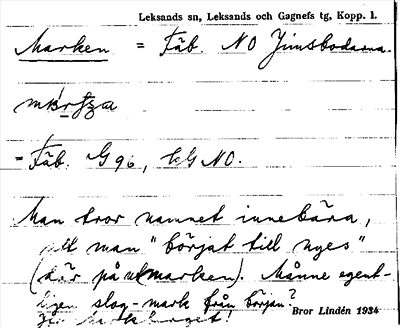 Leksands sn, Leksands och Gagnefs tg, Kopp. 1.
Marken = Fäb. NO Jimsbodarna.
= Fäb. G 96, NO.
Man tror namnet innebära,
att man "börjat till nyes"
(där på utmarken). Månne egent-
ligen slog-mark från början?
Jfr Markberget!
Bror Lindén 1934